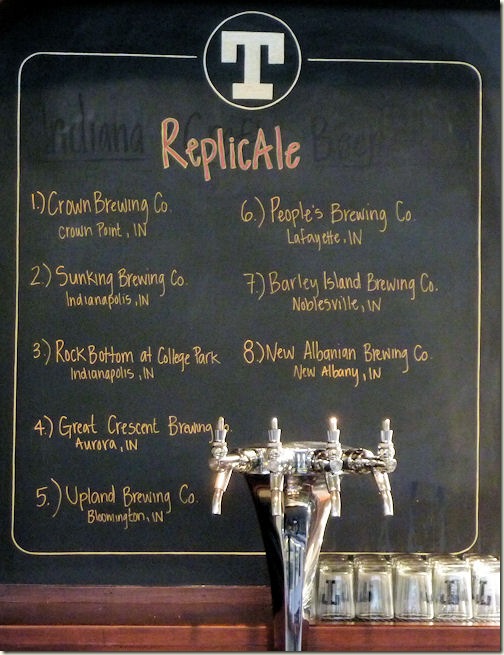 T
Indiana Craft Beer
ReplicAle
1.) Crown Brewing Co.
Crown Point, IN
2.) Sunking Brewing Co.
Indianapolis, IN
3.) Rock Bottom at College Park
Indianapolis, IN
4.) Great Crescent Brewing Co.
Aurora, IN
5.) Upland Brewing Co.
Bloomington, IN
6.) People's Brewing Co.
Lafayette, IN
7.) Barley Island Brewing Co.
Noblesville, IN
8.) New Albanian Brewing Co.
New Albany, IN